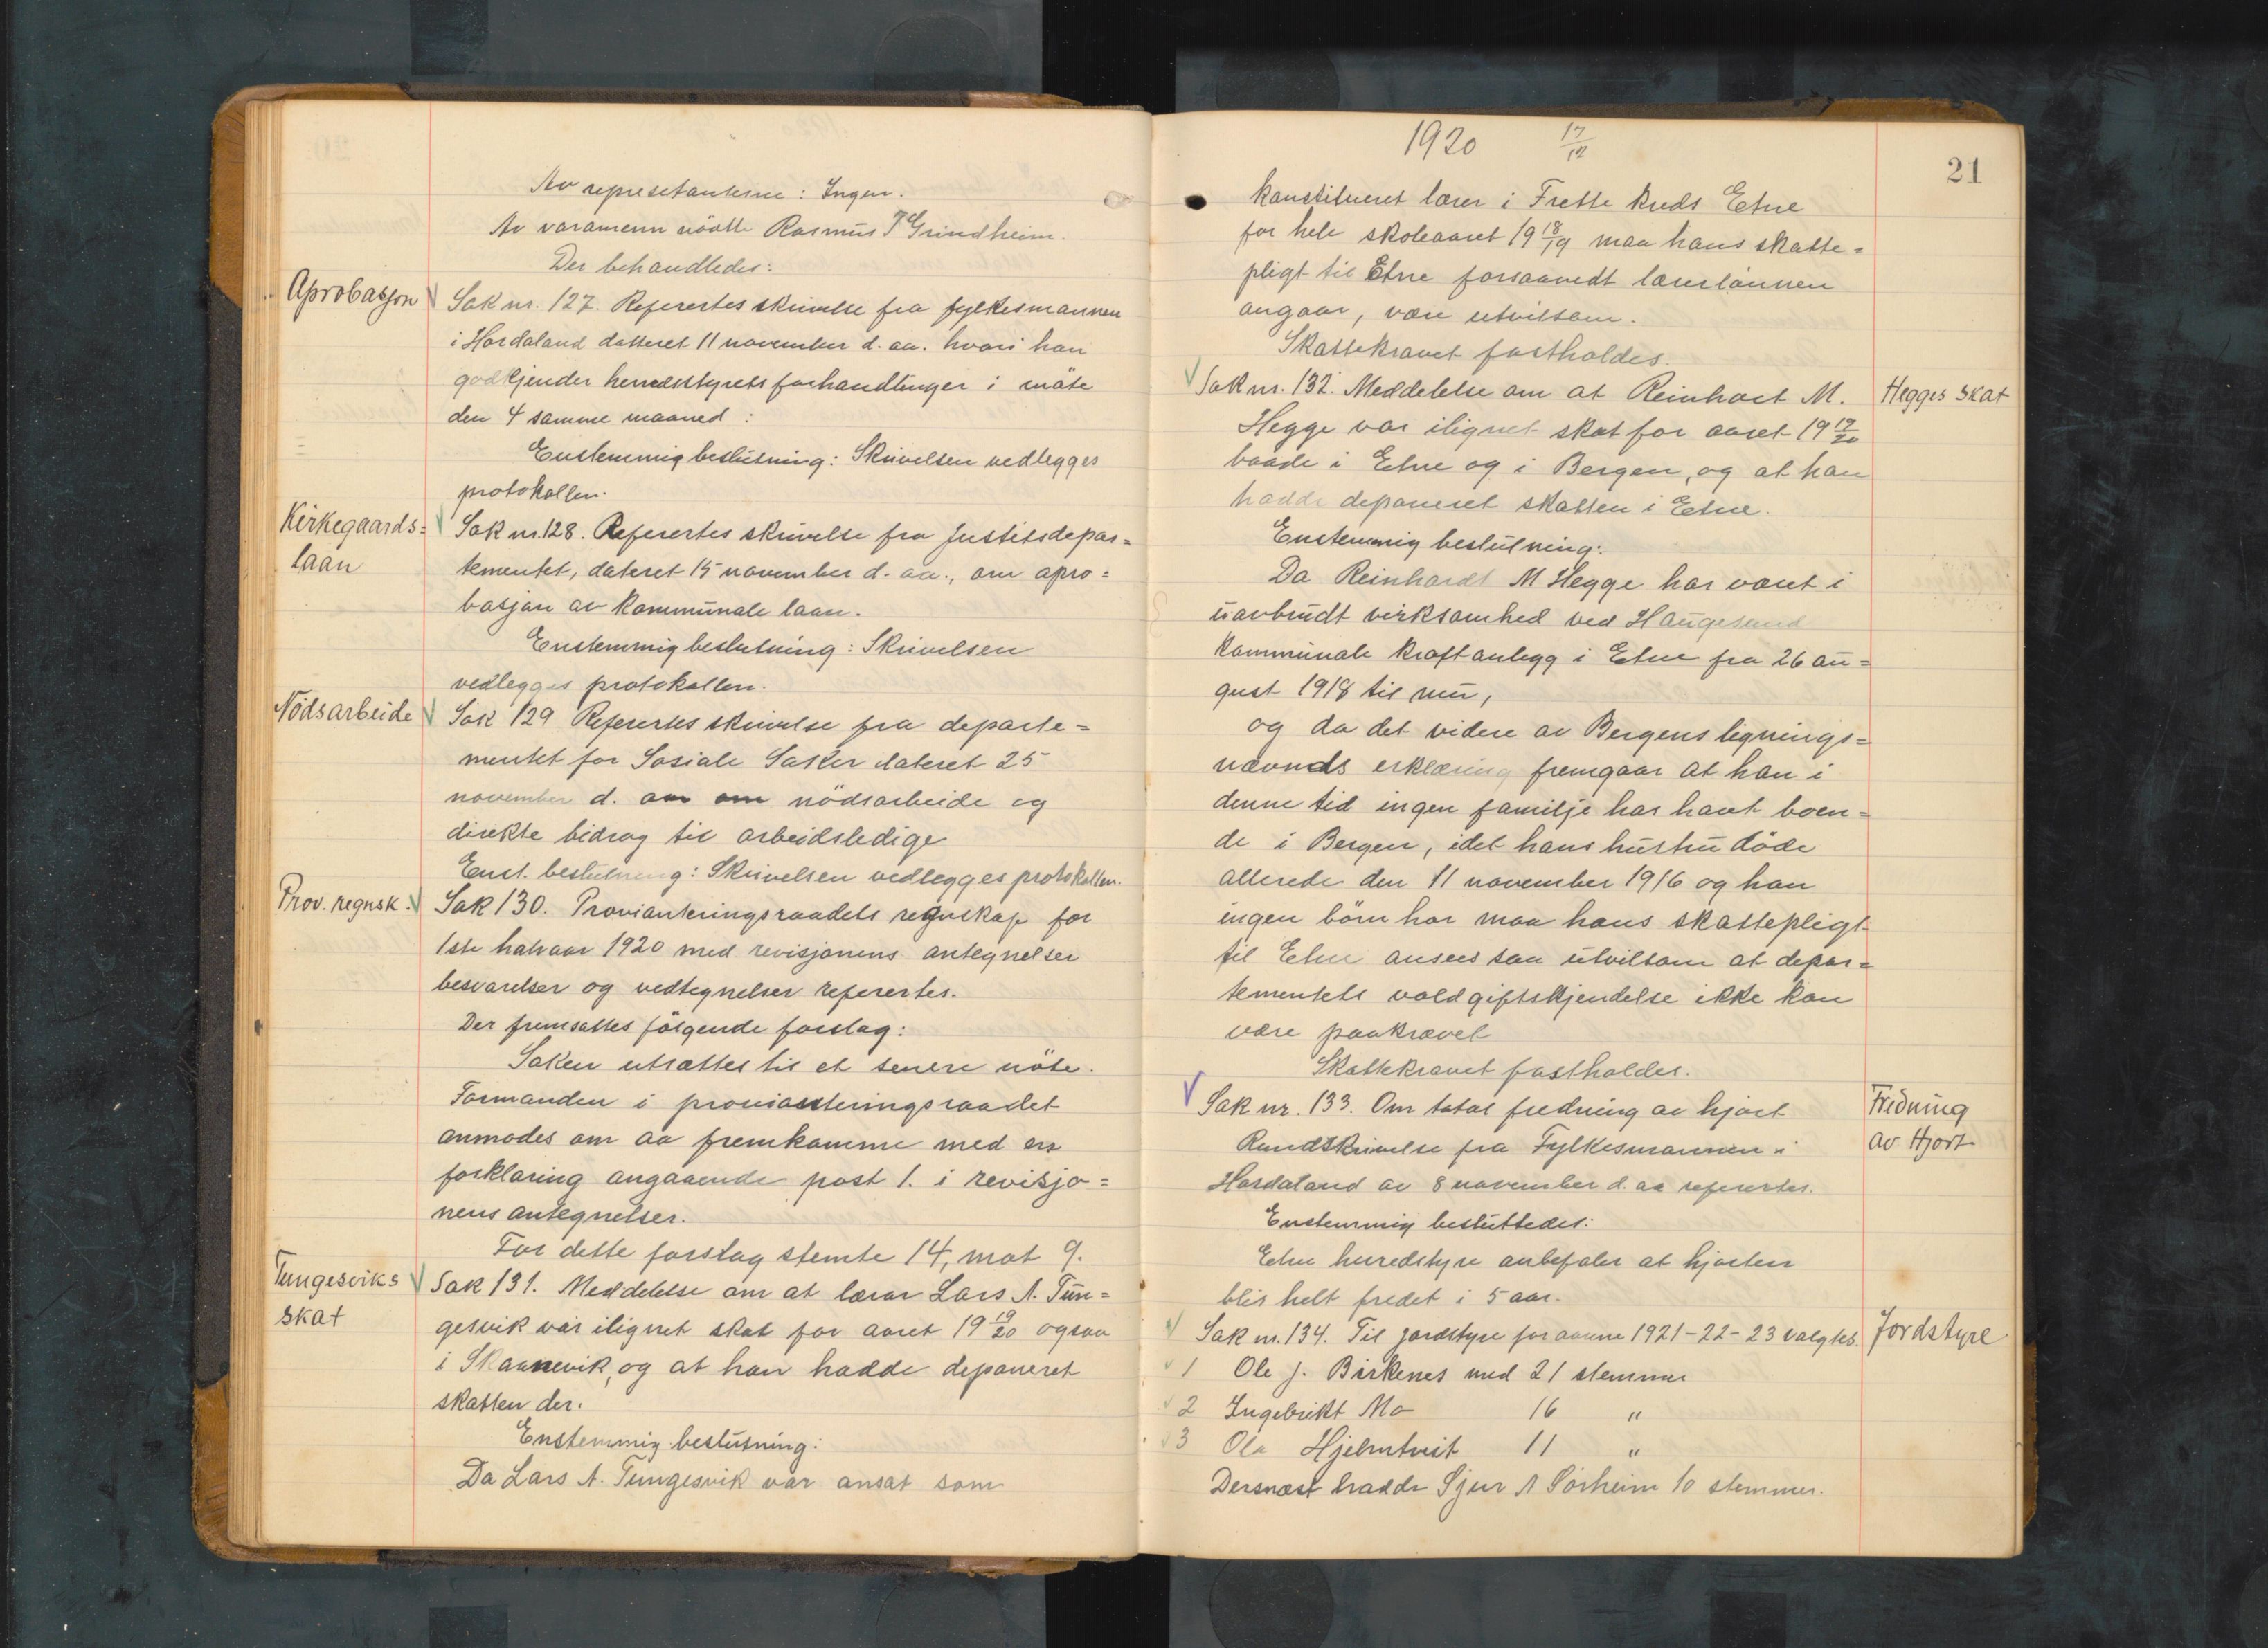 Av represetanterne: Ingen.
Av varamenn mötte Rasmus T Grindheim.
Der behandledes:
Aprobasjon
Sak nr. 127. Referertes skrivelse fra fylkesmannen
i Hordaland datteret 11 november d. aa. hvori han
godkjender herredsstyrets forhandlinger i möte
den 4 samme maaned:
Enstemmig beslutning: Skrivelsen vedlegges
protokollen.
Kirkegaards=
laan
Sak nr. 128. Referertes skrivelse fra Justitsdepar=
tementet, dateret 15 november d. aa., om apro=
basjon av kommunale laan.
Enstemmig beslutning: Skrivelsen
vedlegges protokollen.
Nödsarbeide
Sak 129 Referertes skrivelse fra departe=
mentet for Sosiale Saker dateret 25
november d. aa om nödsarbeide og
direkte bidrag til arbeidsledige
Enst. beslutning: Skrivelsen vedlegges protokollen.
Prov. regnsk.
Sak 130. Provianteringsraadets regnskap for
1ste halvaar 1920 med revisjonens antegnelser
besvarelser og vedtegnelser referertes.
Der fremsattes fölgende forslag:
Saken utsættes til et senere möte.
Formanden i provianteringsraadet
anmodes om aa fremkomme med en
forklaring angaaende post 1. i revisjo=
nens antegnelser.
For dette forslag stemte 14, mot 9.
Tungesviks
skat
Sak 131. Meddelelse om at lærer Lars A. Tun=
gesvik var ilignet skat for aaret 19 19/20 ogsaa
i Skaanevik, og at han hadde deponeret
skatten der.
Enstemmig beslutning:
Da Lars A. Tungesvik var ansat som
1920 17/12
21
konstitueret lærer i Frette kreds Etne
for hele skoleaaret 19 18/19 maa hans skatte=
pligt til Etne forsaavedt lærerlönnen
angaar, være utvilsom.
Skattekravet fastholdes.
Sak nr. 132. Meddelelse om at Reinhart M.
Hegges skat
Hegge var ilignet skat for aaret 19 19/20
baade i Etne og i Bergen, og at han
hadde deponeret skatten i Etne.
Enstemmig beslutning:
Da Reinhardt M Hegge har været i
uavbrudt virksomhed ved Haugesund
kommunale kraftanlegg i Etne fra 26 au=
gust 1918 til nu,
og da det videre av Bergens lignings=
nævnds erklæring fremgaar at han i
denne tid ingen familje har havt boen=
de i Bergen, idet hans hustru döde
allerede den 11 november 1916 og han
ingen börn har maa hans skattepligt
til Etne ansees saa utvilsom at depar=
tementets voldgiftskjendelse ikke kan
være paakrævet
Skattekravet fastholdes.
Sak nr. 133. Om total fredning av hjort
Fredning
av Hjort
Rundskrivelse fra Fylkesmannen i
Hordaland av 8 november d. aa referertes.
Enstemmig besluttedes:
Etne herredstyre anbefaler at hjorten
blir helt fredet i 5 aar.
Sak nr. 134. Til jordstyre for aarene 1921-22-23 valgtes.
Jordstyre
1 Ole J. Birkenes med 21 stemmer
2 Ingebrikt Mo 16 "
3 Ola Hjelmtveit 11 "
Dersnæst hadde Sjur A Sörheim 10 stemmer.